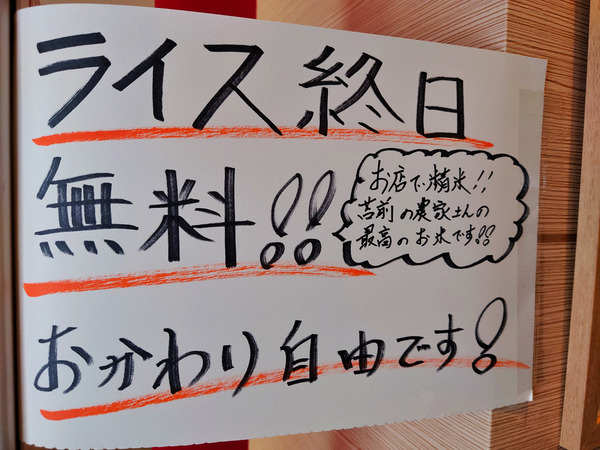 ライス終日
無料!!
お店で精米!!
苫前の農家さんの
最高のお米です!!
おかわり自由です!